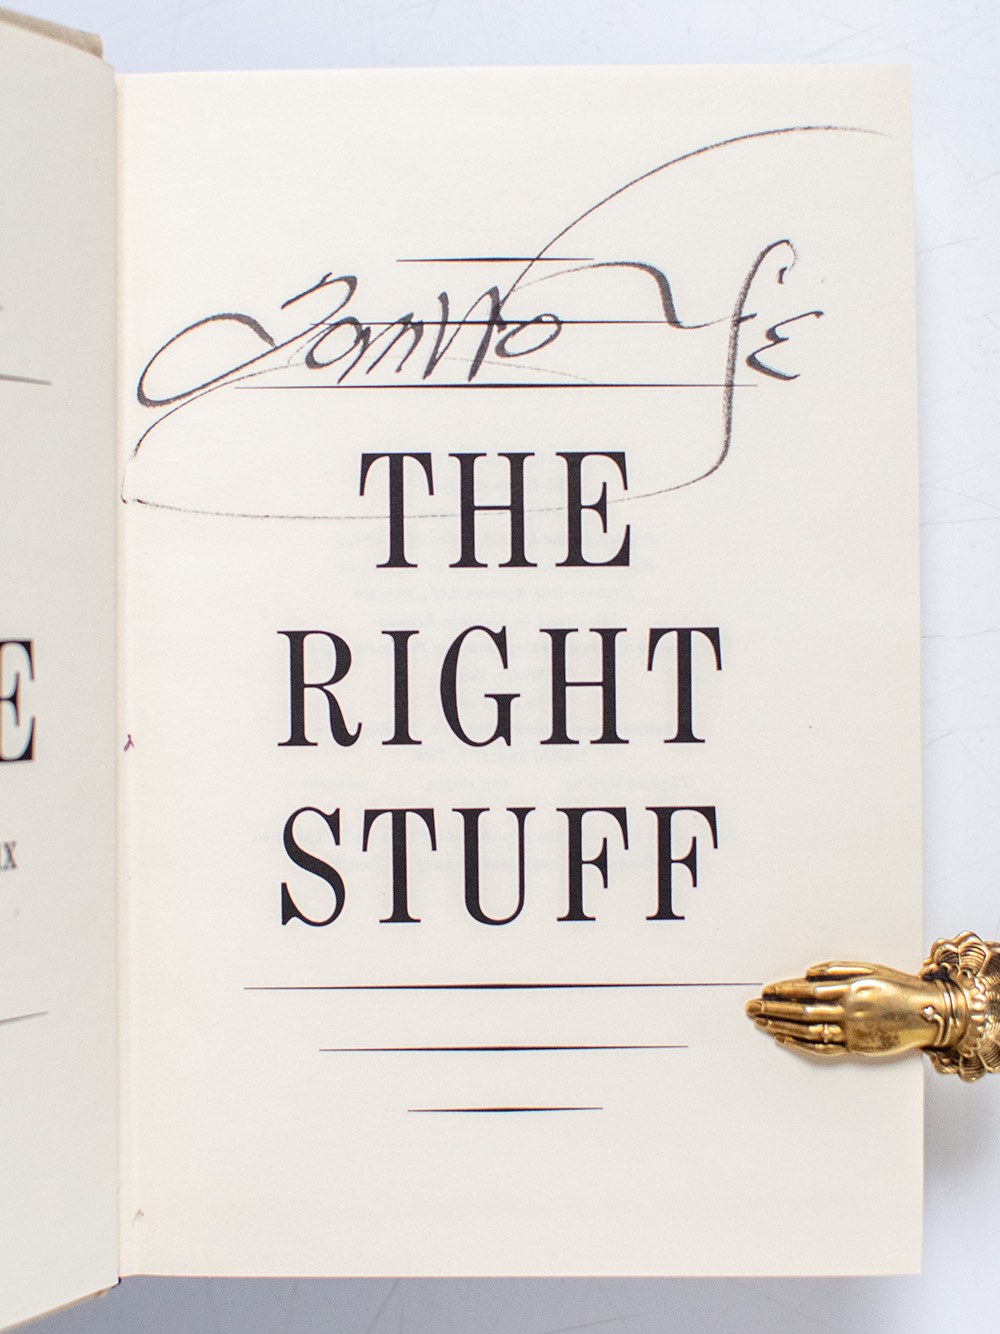 Tom Wolfe
THE
RIGHT
STUFF